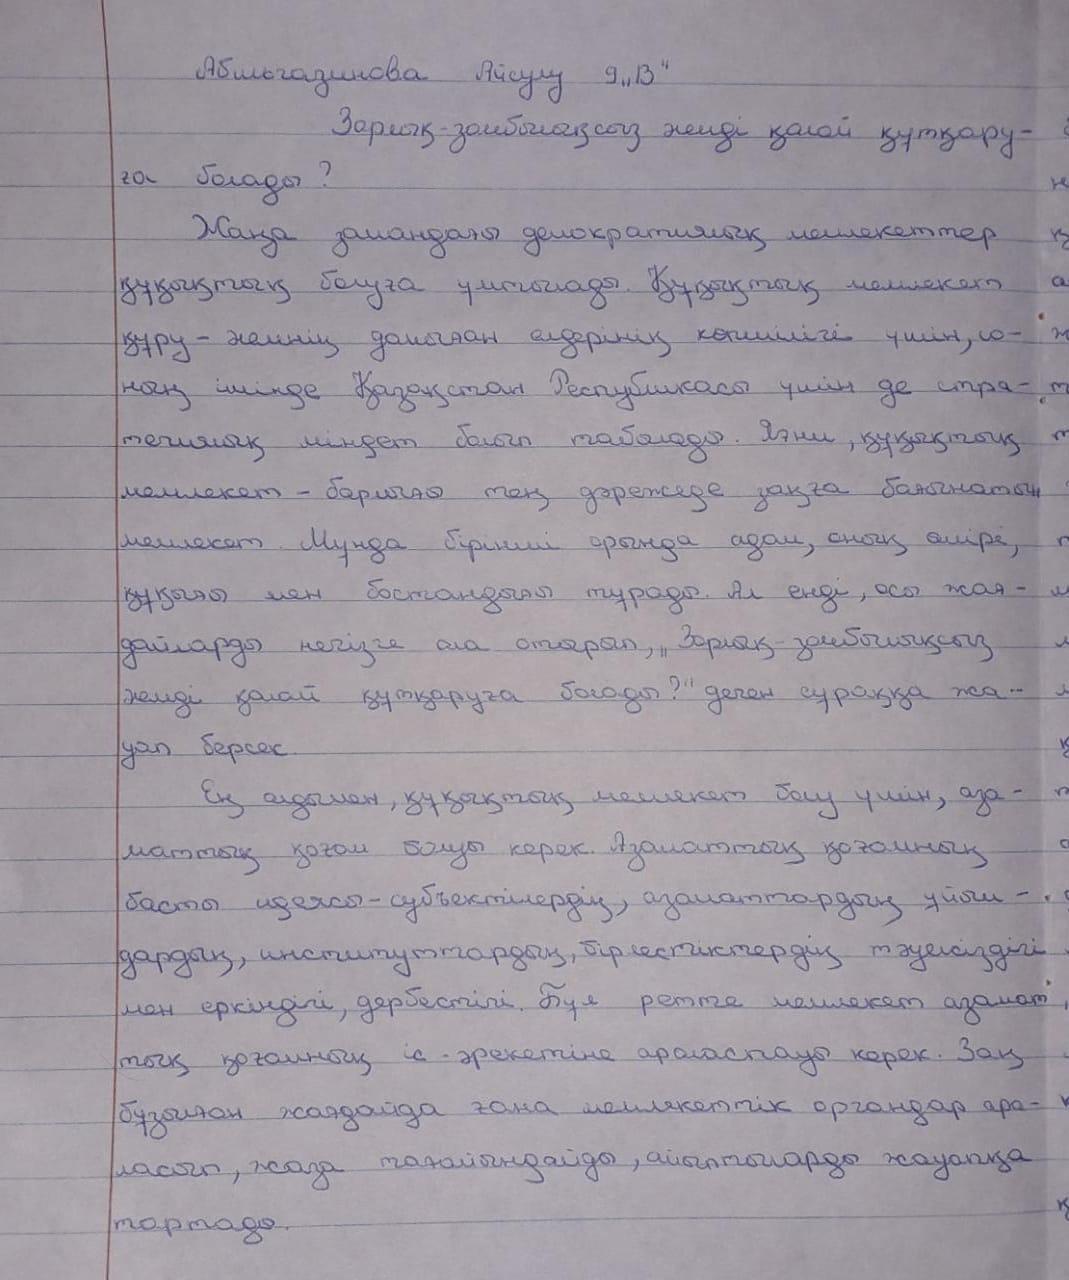 Абильгазинова Айсулу 9„В"
Зорлық-зомбылықсыз әлемді қалай құтқару-
ға болады?
Жаңа замандағы демократиялық мемлекеттер
құқықтық болуға ұмтылады. Құқықтық мемлекет
құру - әлемнің дамыған елдерінің көпшілігі үшін, со-
ның ішінде Қазақстан Республикасы үшін де стра-
тегиялық міндет болып табылады. Яғни, құқықтық
мемлекет - барлығы тең дәрежеде заңға бағынатын
мемлекет. Мұнда бірінші орында адам, оның өмірі,
құқығы мен бостандығы тұрады. Ал енді, осы жағ-
дайларды негізге ала отырып, „Зорлық-зомбылықсыз
әлемді қалай құтқаруға болады?" деген сұраққа жа-
уап берсек.
Ең алдымен, құқықтық мемлекет болу үшін, аза-
маттық қоғам болуы керек. Азаматтық қоғамның
басты идеясы - субъектілердің, азаматтардың ұйым-
дардың, институттардың, бірлестіктердің тәуелсіздігі
мен еркіндігі, дербестігі. Бұл ретте мемлекет азамат
тық қоғамның іс-әрекетіне араласпауы керек. Заң
бұзылған жағдайда ғана мемлекеттік органдар ара-
ласып, жаза тағайындайды, айыптыларды жауапқа
тартады.